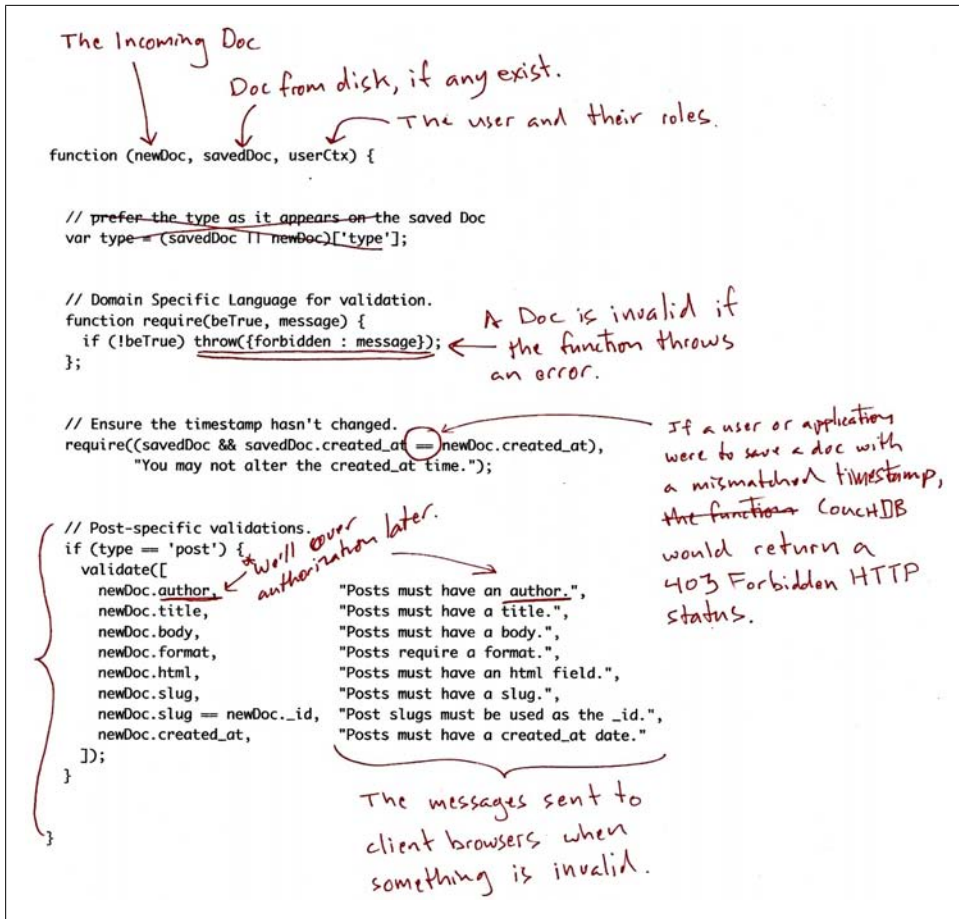 The Incoming Doc
Doc from disk, if any exist.
The user and their roles.
function (newDoc, savedDoc, userCtx) {
// prefer the type as it appears on the saved Doc
var type = (savedDoc || newDoc)['type'];
// Domain Specific Language for validation.
function require(beTrue, message) {
if (!beTrue) throw({forbidden : message});
};
A Doc is invalid if
the function throws
an error.
// Ensure the timestamp hasn't changed.
require((savedDoc && savedDoc.created_at == newDoc.created_at),
"You may not alter the created_at time.");
If a user or application
were to save a doc with
a mismatched timestamp,
the function CouchDB
would return a
403 Forbidden HTTP
status.
// Post-specific validations.
if (type == 'post') {
validate([
* We'll cover
authorization later.
newDoc.author, "Posts must have an author.",
newDoc.title, "Posts must have a title.",
newDoc.body, "Posts must have a body.",
newDoc.format, "Posts require a format.",
newDoc.html, "Posts must have an html field.",
newDoc.slug, "Posts must have a slug.",
newDoc.slug == newDoc._id, "Post slugs must be used as the _id.",
newDoc.created_at, "Posts must have a created_at date."
]);
}
}
The messages sent to
client browsers when
something is invalid.